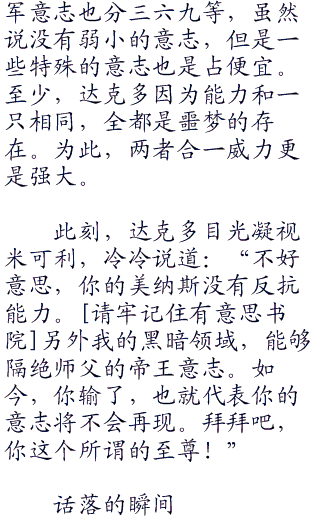 军意志也分三六九等，虽然
说没有弱小的意志，但是一
些特殊的意志也是占便宜。
至少，达克多因为能力和一
只相同，全都是噩梦的存
在。为此，两者合一威力更
是强大。
此刻，达克多目光凝视
米可利，冷冷说道：“不好
意思，你的美纳斯没有反抗
能力。[请牢记住有意思书
院]另外我的黑暗领域，能够
隔绝师父的帝王意志。如
今，你输了，也就代表你的
意志将不会再现。拜拜吧，
你这个所谓的至尊！”
话落的瞬间